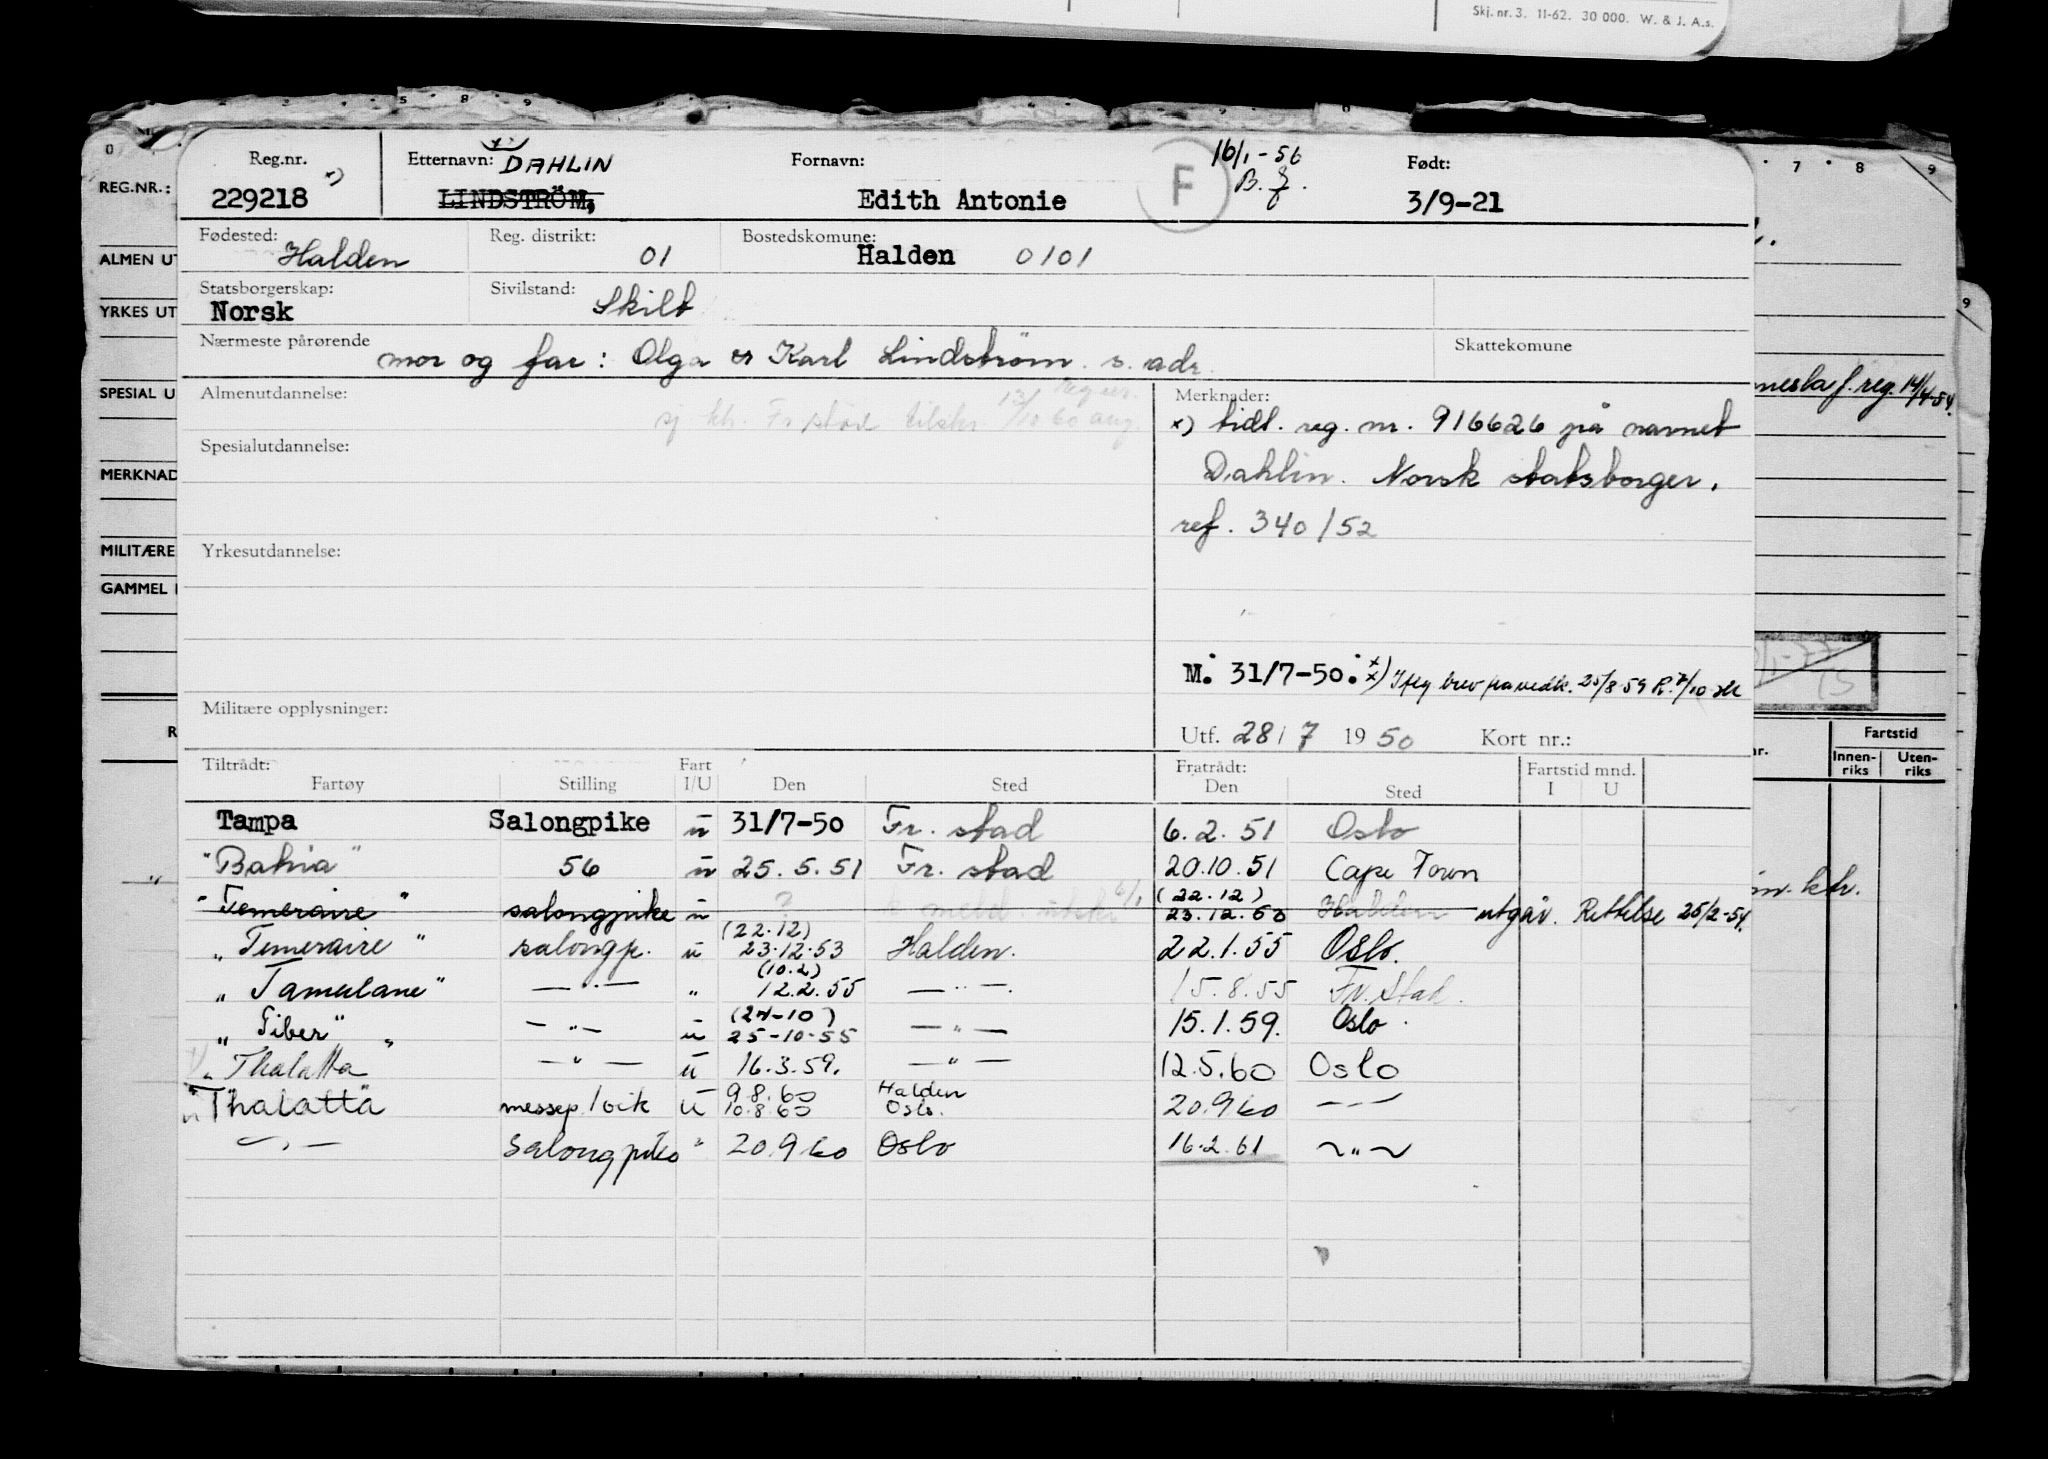 Skj. nr. 3. 11-62. 30 000. W. & J. A.s.
Reg.nr. Etternavn: DAHLIN Fornavn: 16/1-56 Født:
229218 x) LINDSTRÖM, Edith Antonie F B. 3/9-21
Fødested: Reg. distrikt: Bostedskomune:
Halden 01 Halden 0101
Statsborgerskap: Sivilstand:
Norsk Skilt
Nærmeste pårørende mor og far: Olga og Karl Lindström. s. adr. Skattekomune
Almenutdannelse: Merknader:
x) tidl. reg. nr. 916626 på navnet
Spesialutdannelse:
Dahlin. Norsk statsborger.
ref. 340/52
Yrkesutdannelse:
M: 31/7-50. xx) Ifølg brev fra vedk. 25/8-59 R. 7/10
Militære opplysninger:
Utf. 28/7 1950 Kort nr.:
Tiltrådt: Fart Fratrådt: Fartstid mnd.
Fartøy Stilling I/U Den Sted Den Sted I U
Tampa Salongpike u 31/7-50 Fr. stad 6.2.51 Oslo
"Bahia" 56 u 25.5.51 Fr. stad 20.10.51 Cape Town
(22.12)
"Temeraire" salongpike u ? 23.12.53 Halden utgår. Rettelse 25/2-54.
(22.12)
"Temeraire" salongp. u 23.12.53 Halden. 22.1.55 Oslo.
(10.2)
"Tamerlane" — " — " 12.2.55 — " — 15.8.55 Fr. stad.
(24-10)
"Tiber" — " — u 25-10-55 — " — 15.1.59. Oslo.
"Thalatta" — " — u 16.3.59. — " — 12.5.60 Oslo
9.8.60 Halden
"Thalatta messep./vik u 10.8.60 Oslo. 20.9.60 — " —
— " — salongpike " 20.9.60 Oslo 16.2.61 — " —
REG.NR.:
ALMEN UT
YRKES UT
SPESIAL U
MERKNAD
MILITÆRE
GAMMEL
R
f. reg. 14/4-54.
Fartstid
Innen- Uten-
riks riks